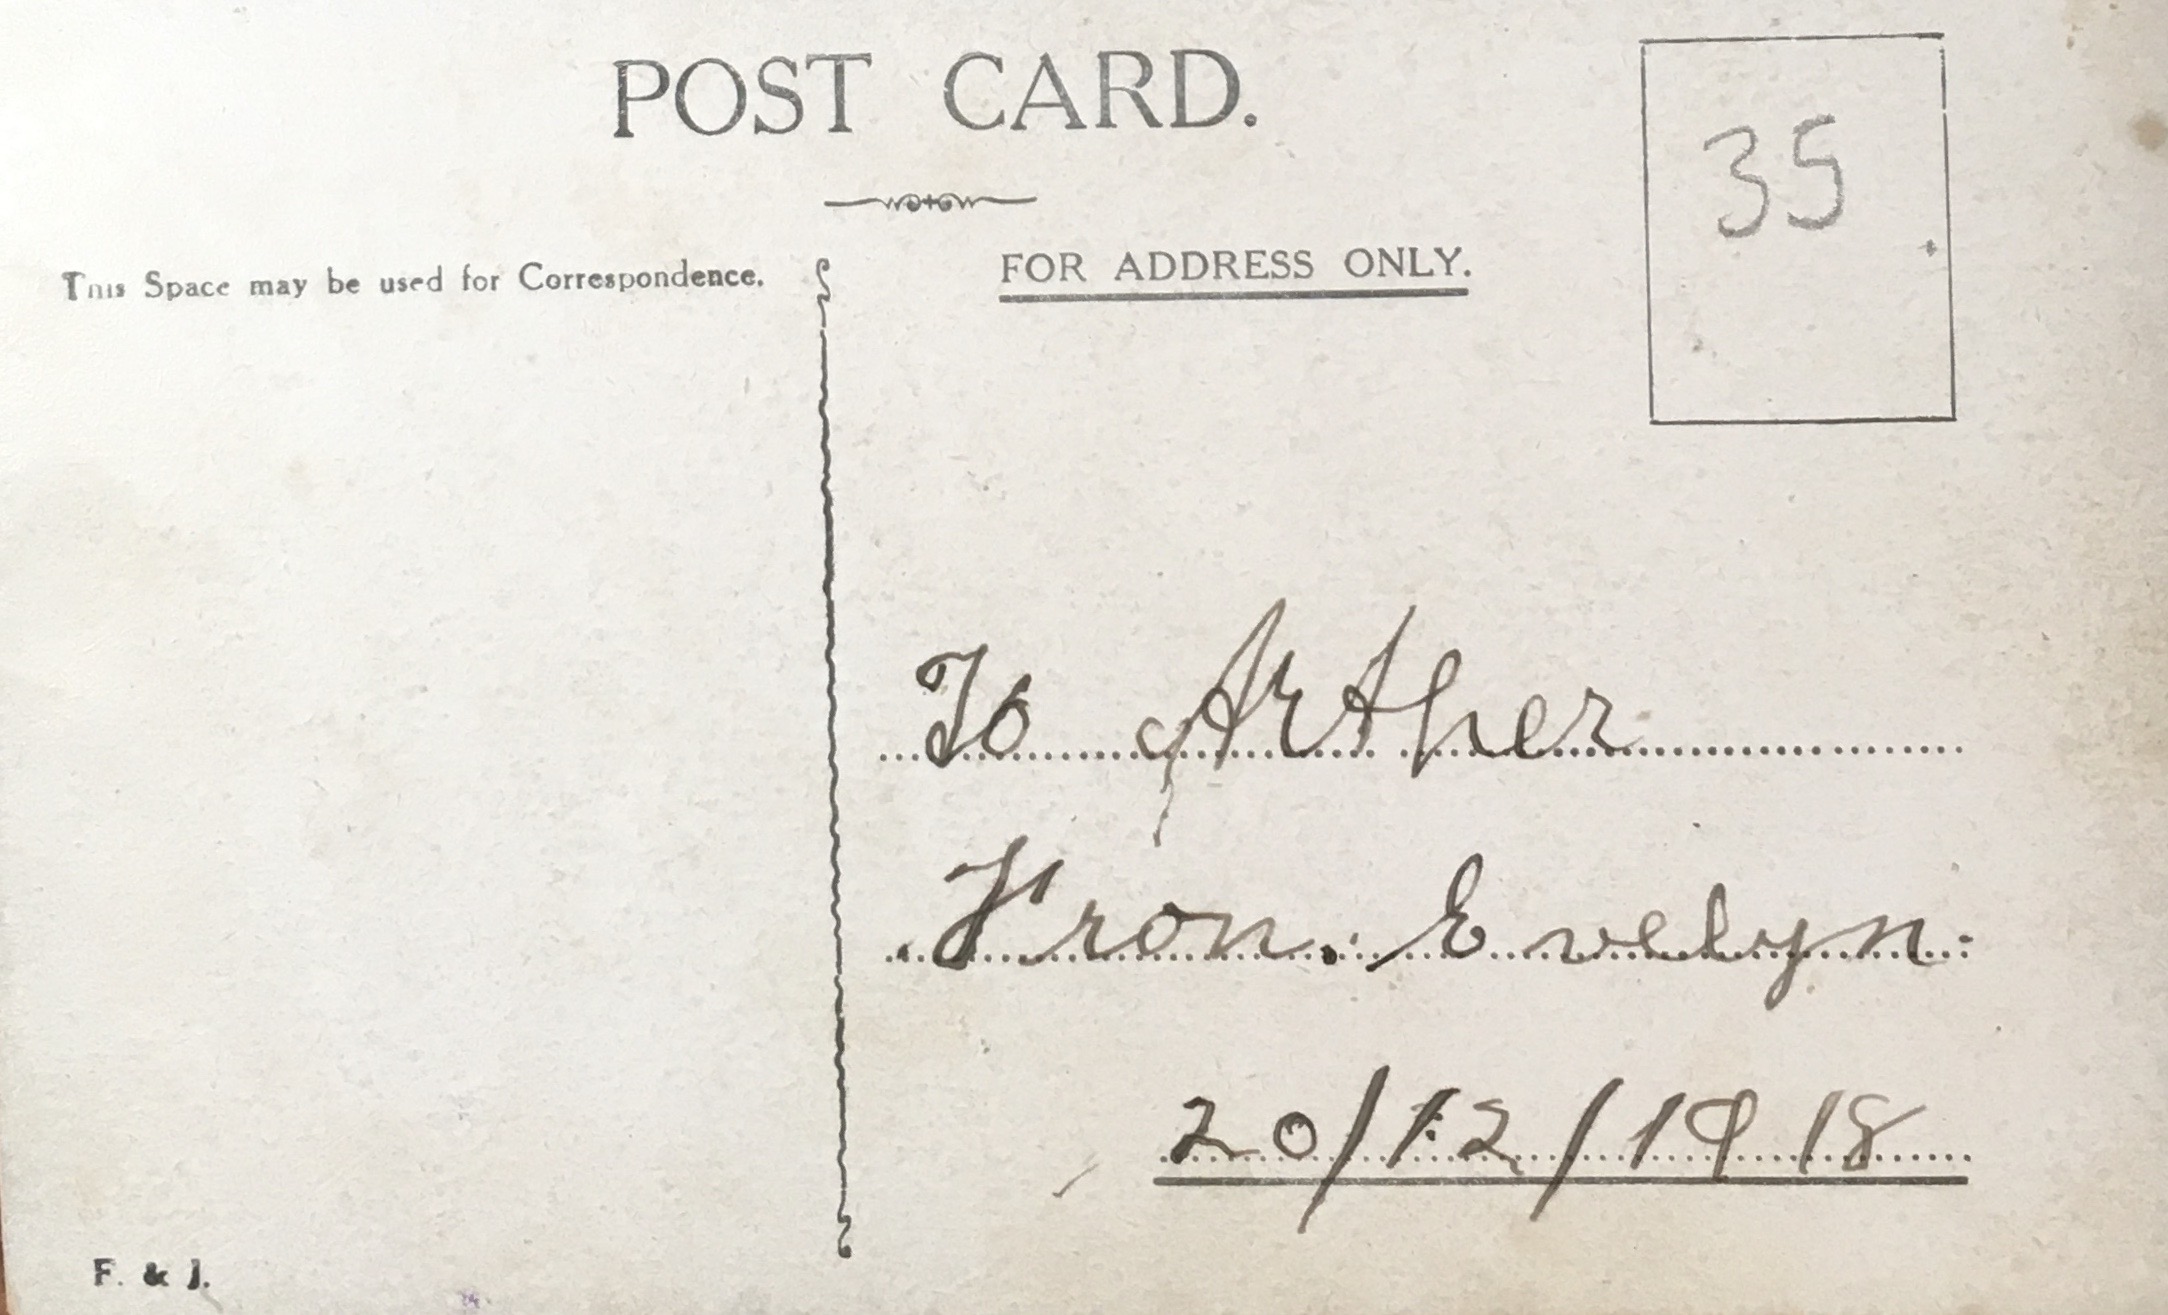 POST CARD.
35
This Space may be used for Correspondence.
FOR ADDRESS ONLY.
To Arther
Fron. Evelyn.
20/12/1918
F. & J.